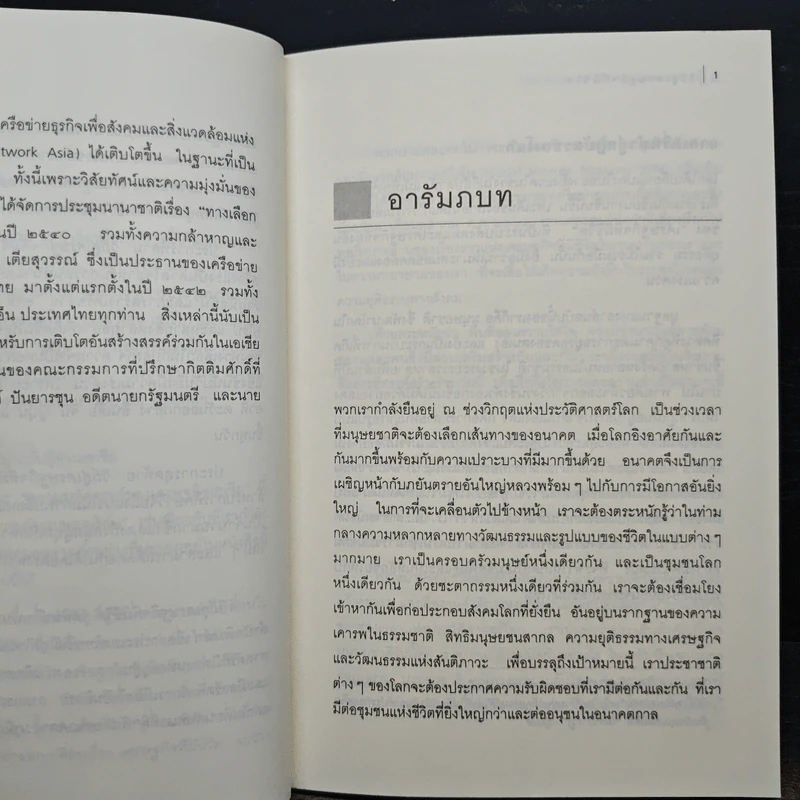 ครือข่ายธุรกิจเพื่อสังคมและสิ่งแวดล้อมแห่ง
twork Asia) ได้เติบโตขึ้น ในฐานะที่เป็น
ทั้งนี้เพราะวิสัยทัศน์และความมุ่งมั่นของ
ได้จัดการประชุมนานาชาติเรื่อง “ทางเลือก
นปี ๒๕๔๐ รวมทั้งความกล้าหาญและ
เตียสุวรรณ์ ซึ่งเป็นประธานของเครือข่าย
ทย มาตั้งแต่แรกตั้งในปี ๒๕๔๒ รวมทั้ง
อ็น ประเทศไทยทุกท่าน สิ่งเหล่านี้นับเป็น
หรับการเติบโตอันสร้างสรรค์ร่วมกันในเอเชีย
นของคณะกรรมการที่ปรึกษากิตติมศักดิ์ที่
ปันยารชุน อดีตนายกรัฐมนตรี และนาย
1
อารัมภบท
พวกเรากำลังยืนอยู่ ณ ช่วงวิกฤตแห่งประวัติศาสตร์โลก เป็นช่วงเวลา
ที่มนุษยชาติจะต้องเลือกเส้นทางของอนาคต เมื่อโลกอิงอาศัยกันและ
กันมากขึ้นพร้อมกับความเปราะบางที่มีมากขึ้นด้วย อนาคตจึงเป็นการ
เผชิญหน้ากับภยันตรายอันใหญ่หลวงพร้อม ๆ ไปกับการมีโอกาสอันยิ่ง
ใหญ่ ในการที่จะเคลื่อนตัวไปข้างหน้า เราจะต้องตระหนักรู้ว่าในท่าม
กลางความหลากหลายทางวัฒนธรรมและรูปแบบของชีวิตในแบบต่าง ๆ
มากมาย เราเป็นครอบครัวมนุษย์หนึ่งเดียวกัน และเป็นชุมชนโลก
หนึ่งเดียวกัน ด้วยชะตากรรมหนึ่งเดียวที่ร่วมกัน เราจะต้องเชื่อมโยง
เข้าหากันเพื่อก่อประกอบสังคมโลกที่ยั่งยืน อันอยู่บนรากฐานของความ
เคารพในธรรมชาติ สิทธิมนุษยชนสากล ความยุติธรรมทางเศรษฐกิจ
และวัฒนธรรมแห่งสันติภาวะ เพื่อบรรลุถึงเป้าหมายนี้ เราประชาชาติ
ต่าง ๆ ของโลกจะต้องประกาศความรับผิดชอบที่เรามีต่อกันและกัน ที่เรา
มีต่อชุมชนแห่งชีวิตที่ยิ่งใหญ่กว่าและต่ออนุชนในอนาคตกาล